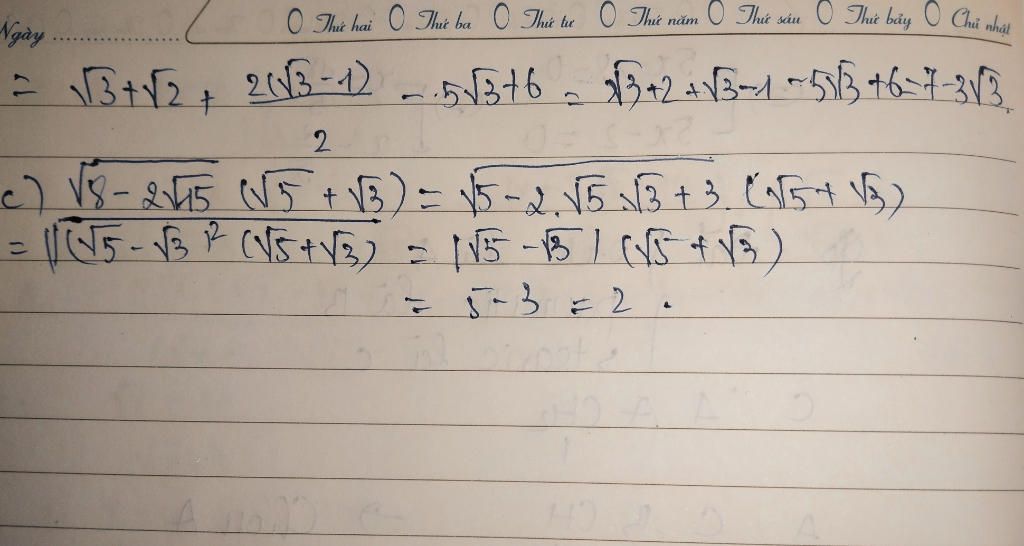 Ngày ........................ Thứ hai Thứ ba Thứ tư Thứ năm Thứ sáu Thứ bảy Chủ nhật
= √3+√2 + 2(√3-1)/2 - 5√3+6 = √3+2+√3-1-5√3+6=7-3√3
c) √(8-2√15) (√5+√3) = √(5-2.√5.√3+3).(√5+√3)
= √((√5-√3)² (√5+√3) = |√5-√3| (√5+√3)
= 5-3 = 2.